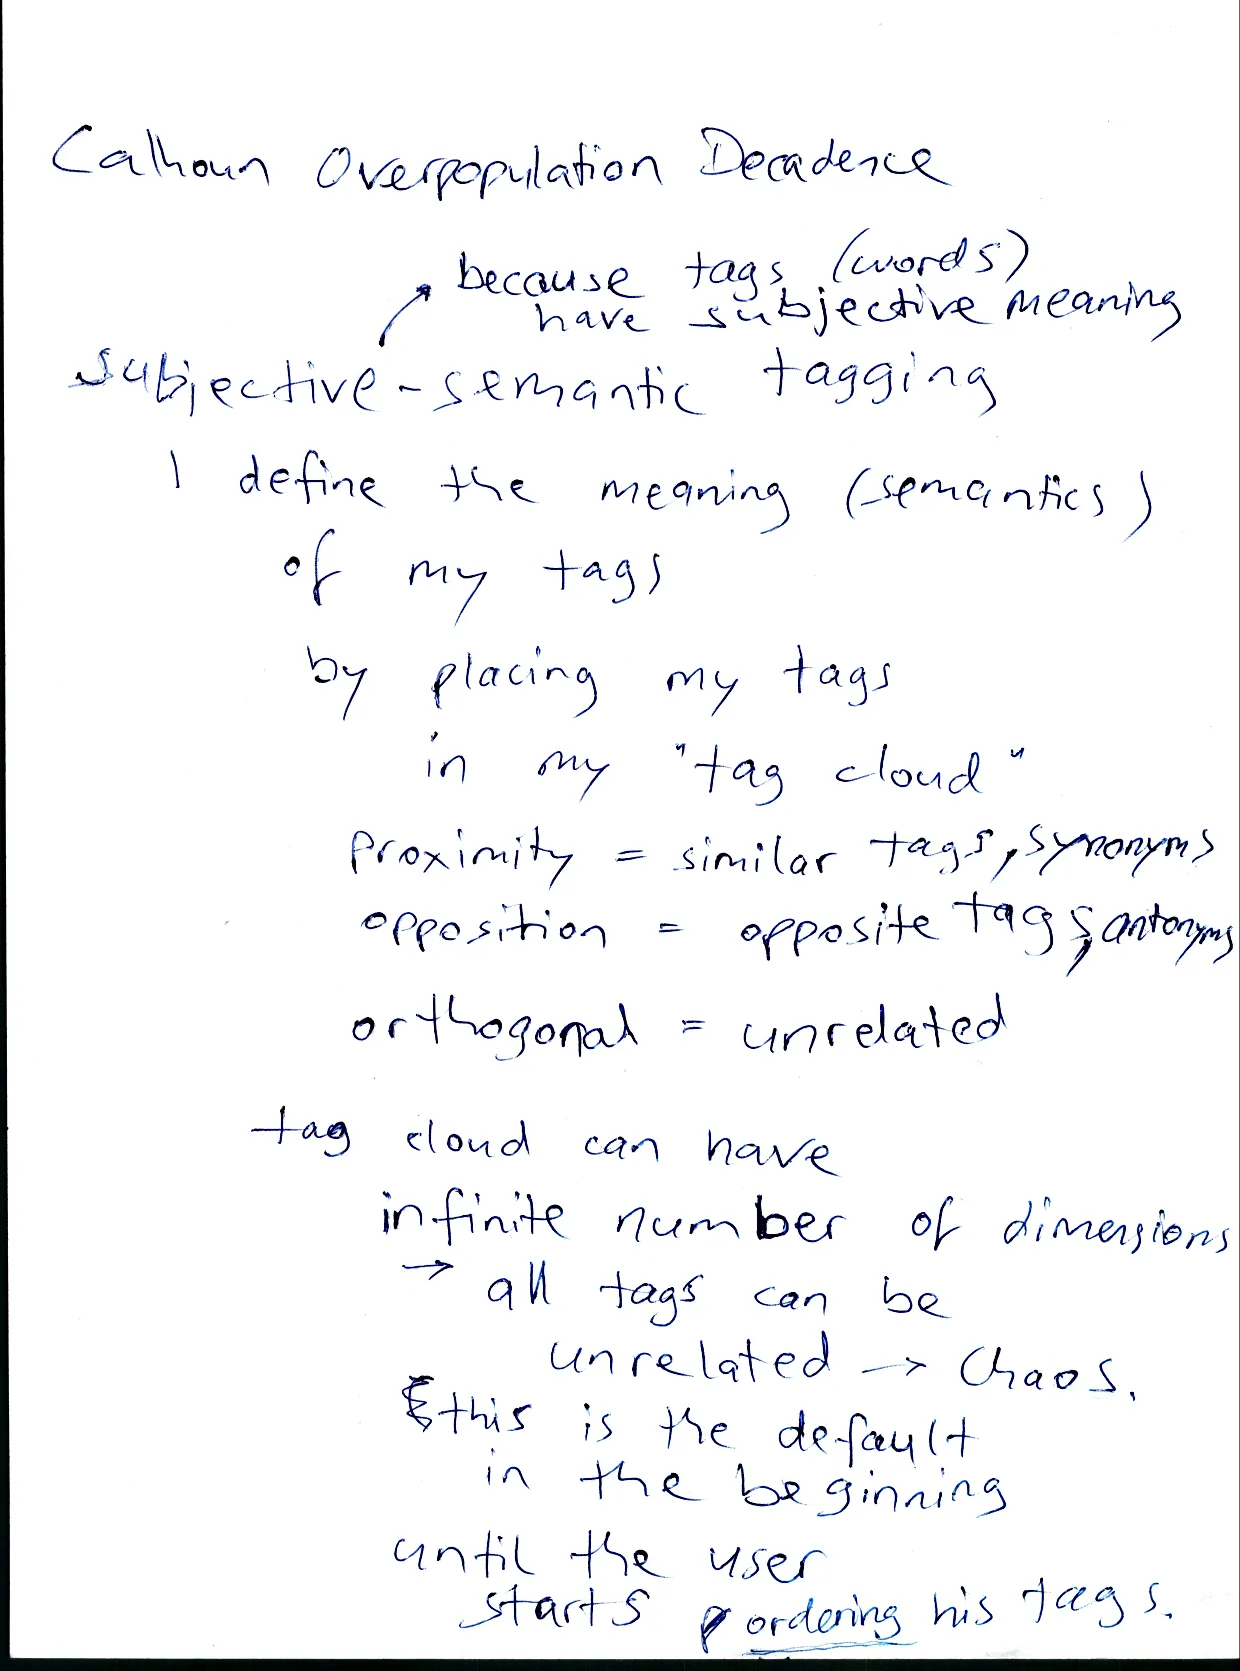 Calhoun Overpopulation Decadence
because tags (words)
have subjective meaning
subjective-semantic tagging
I define the meaning (semantics)
of my tags
by placing my tags
in my "tag cloud"
proximity = similar tags, synonyms
opposition = opposite tags, antonyms
orthogonal = unrelated
tag cloud can have
infinite number of dimensions
→ all tags can be
unrelated → Chaos.
this is the default
in the beginning
until the user
starts ordering his tags.